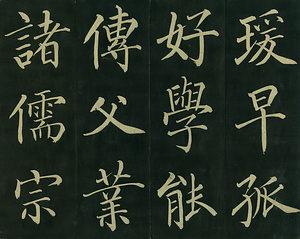 瑗早孤
好學能
傳父業
諸儒宗